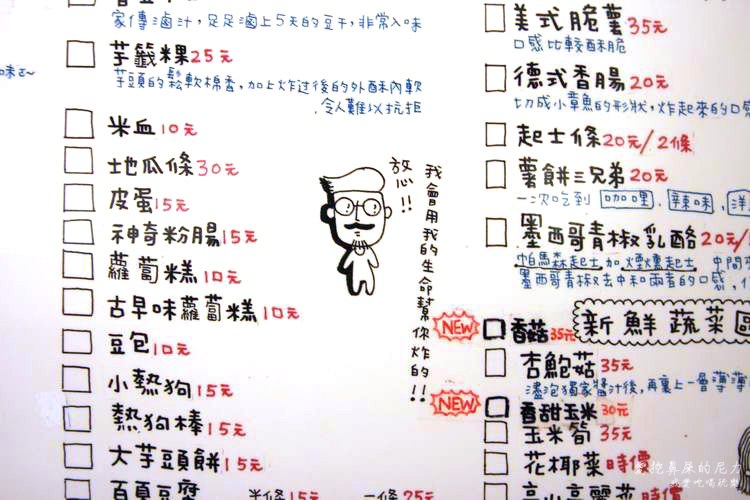 家傳滷汁，足足滷上5天的豆干，非常入味
芋籤粿25元
芋頭的鬆軟棉香，加上炸过後的外酥內軟
令人難以抗拒
米血10元
地瓜條30元
皮蛋15元
神奇粉腸15元
蘿蔔糕10元
古早味蘿蔔糕10元
豆包10元
小熱狗15元
熱狗棒15元
大芋頭餅15元
百頁豆腐 半條15元 一條25元
放心!!
我會用我的生命幫你炸的!!
美式脆薯35元
口感比較酥脆
德式香腸20元
切成小章魚的形狀，炸起來的口感
起士條20元/2條
薯餅三兄弟20元
一次吃到 咖哩，辣味，洋
墨西哥青椒乳酪20元/
帕馬森起士加煙燻起士 中間
墨西哥青椒去中和兩者的口感，
新鮮蔬菜區
NEW 香菇35元
杏鮑菇35元
浸泡獨家醬汁後，再裹上一層薄薄
NEW 香甜玉米30元
玉米筍35元
花椰菜時價
高山高麗菜時價
愛挖鼻屎的尼力
我愛吃喝玩樂